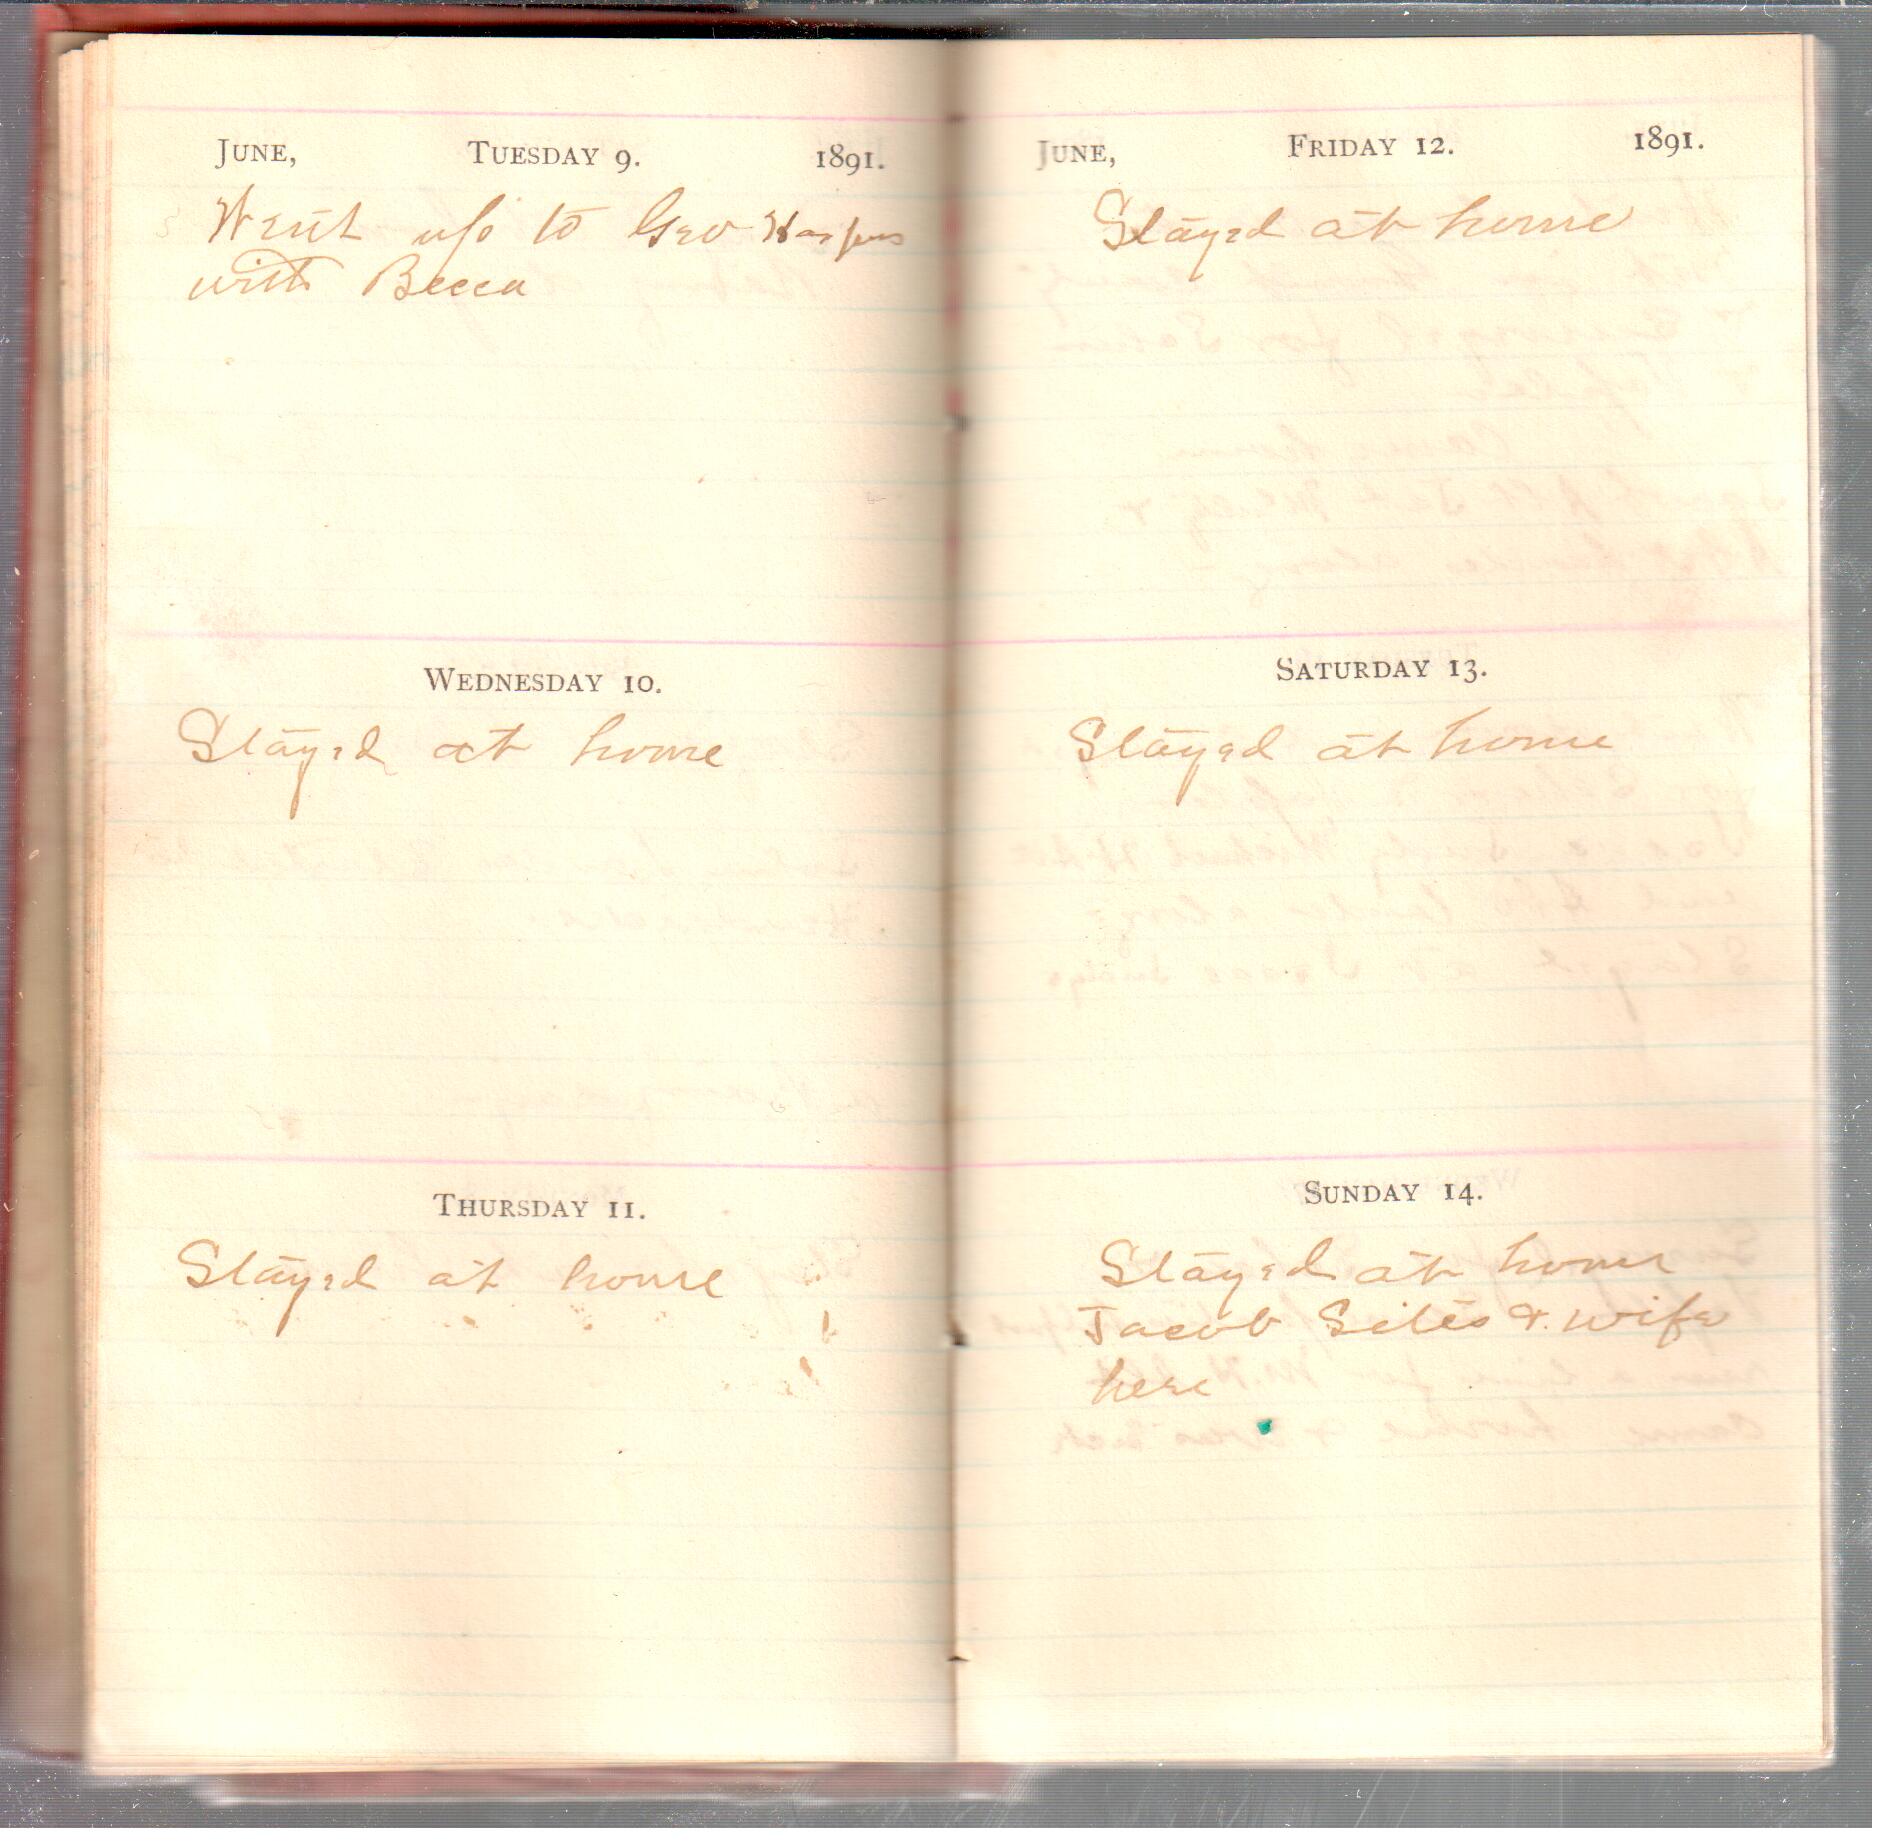 JUNE, TUESDAY 9. 1891.
Went up to Geo Harpers
with Becca
WEDNESDAY 10.
Stayed at home
THURSDAY 11.
Stayed at home
JUNE, FRIDAY 12. 1891.
Stayed at home
SATURDAY 13.
Stayed at home
SUNDAY 14.
Stayed at home
Jacob Sites & wife
here